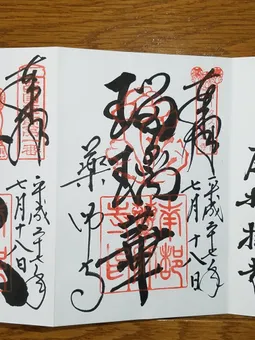 奉拝
平成二十七年
七月十八日
瑠璃華
薬師寺
南都
奉拝
平成二十七年
七月十八日